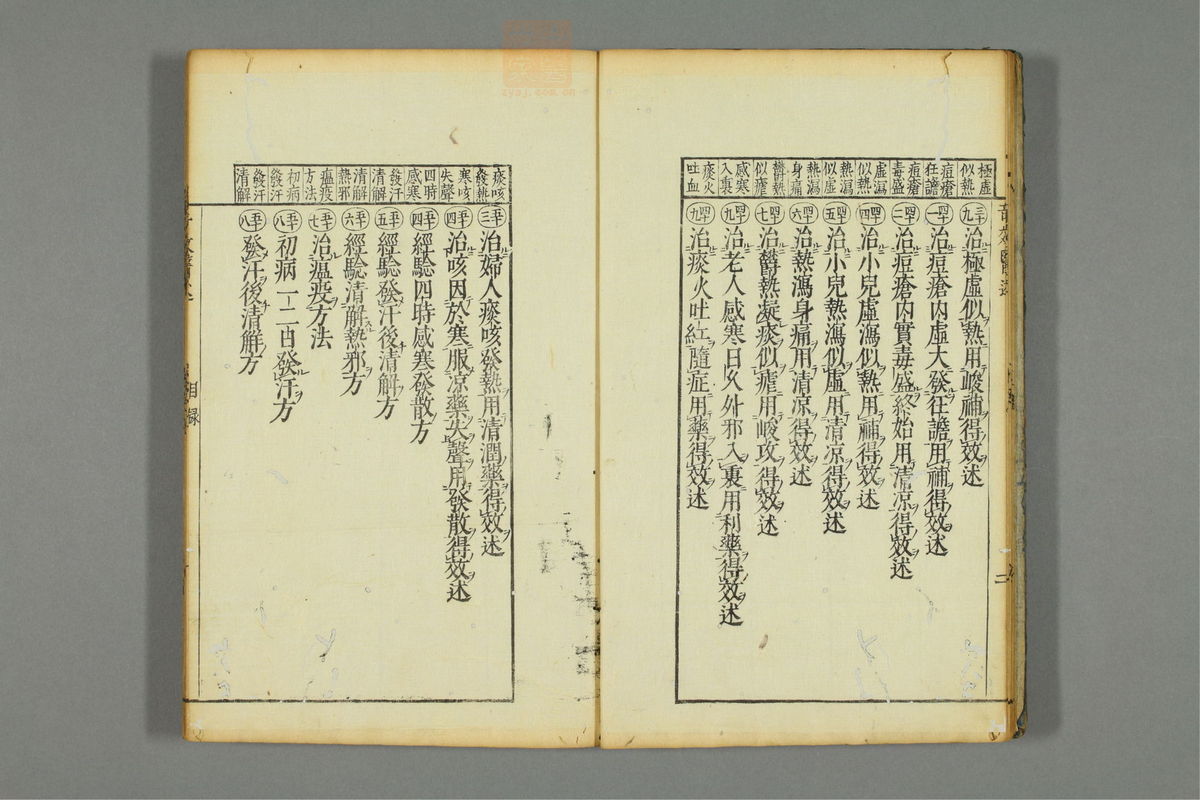 極虛似熱
三十九 治極虛似熱用峻補得效述
痘瘡狂譫
四十一 治痘瘡內虛大發狂譫用補得效述
痘瘡毒盛
四十二 治痘瘡內實毒盛終始用清凉得效述
虛瀉似熱
四十四 治小兒虛瀉似熱用補得效述
熱瀉似虛
四十五 治小兒熱瀉似虛用清凉得效述
熱瀉身痛
四十六 治熱瀉身痛用清凉得效述
欝熱似瘧
四十七 治欝熱凝痰似瘧用峻攻得效述
感寒入裏
四十九 治老人感寒日久外邪入裏用利藥得效述
痰火吐血
四十九 治痰火吐紅隨症用藥得效述
二
痰咳發熱
五十三 治婦人痰咳發熱用清潤藥得效述
寒咳失聲
五十四 治咳因於寒服凉藥失聲用發散得效述
四時感寒
五十四 經驗四時感寒發散方
發汗清解
五十五 經驗發汗後清解方
清解熱邪
五十六 經驗清解熱邪方
瘟疫方法
五十七 治瘟疫方法
初病發汗
五十八 初病一二日發汗方
發汗清解
五十八 發汗後清解方
目録
zysj.com.cn